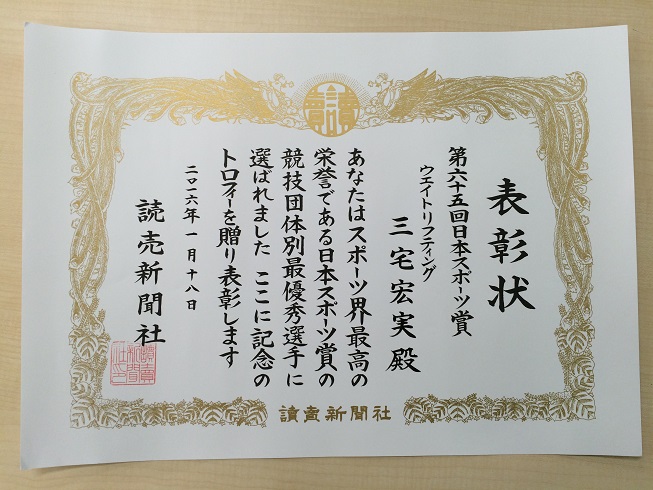 表彰状
第六十五回日本スポーツ賞
ウエイトリフティング
三宅宏実殿
あなたはスポーツ界最高の
栄誉である日本スポーツ賞の
競技団体別最優秀選手に
選ばれました ここに記念の
トロフィーを贈り表彰します
二〇一六年一月十八日
読売新聞社
讀賣新聞社